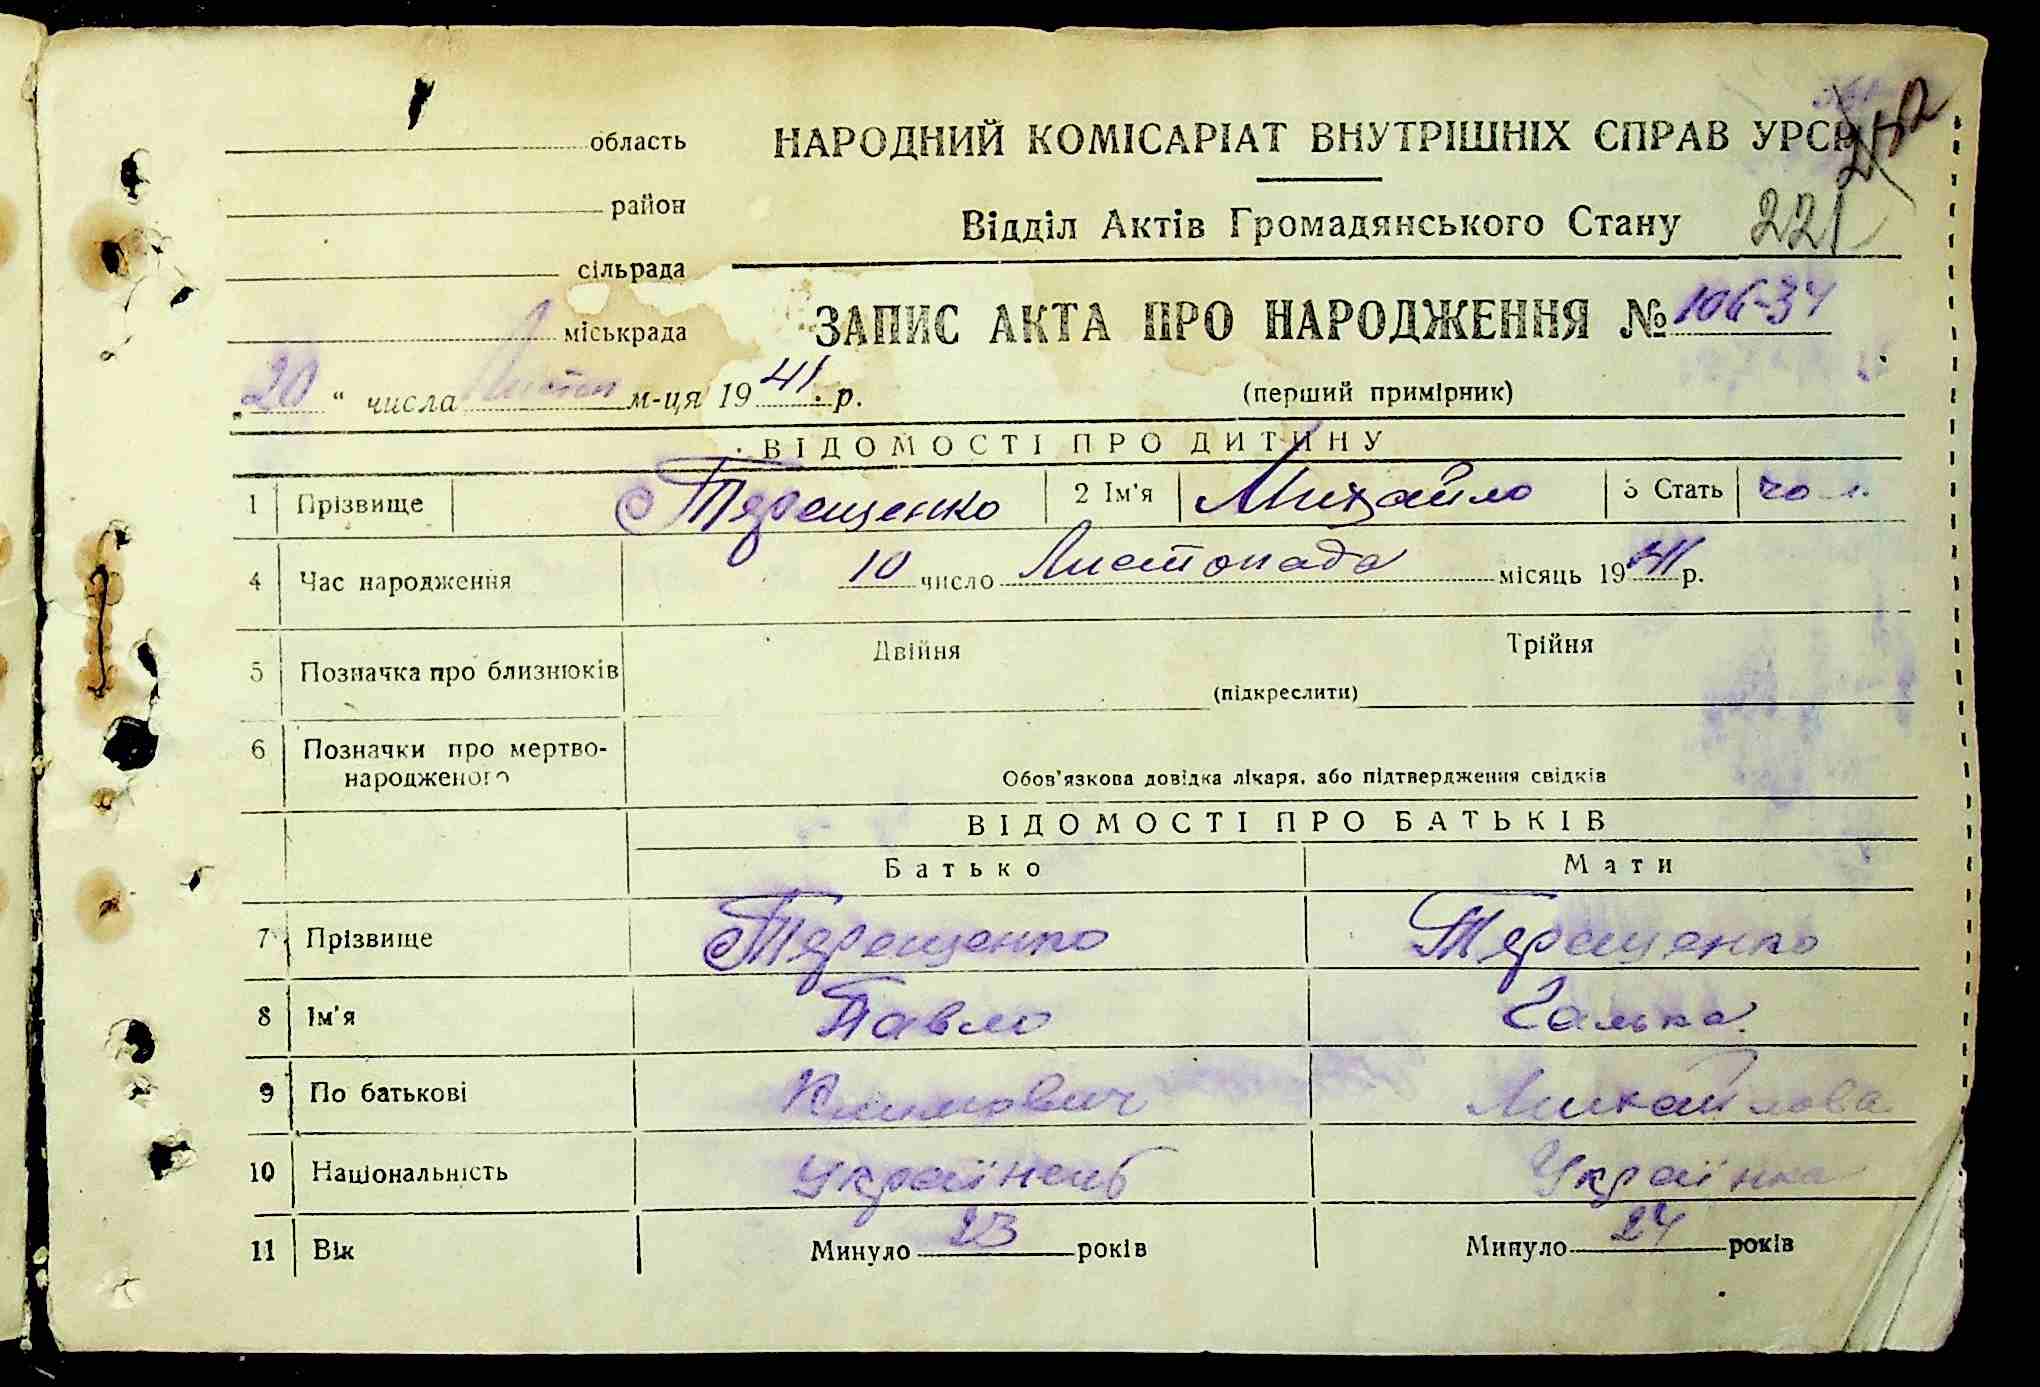 область
НАРОДНИЙ КОМІСАРІАТ ВНУТРІШНІХ СПРАВ УРСР
район
Відділ Актів Громадянського Стану 221
сільрада
міськрада
ЗАПИС АКТА ПРО НАРОДЖЕННЯ № 106-34
„20“ числа Листоп м-ця 1941. р.
(перший примірник)
ВІДОМОСТІ ПРО ДИТИНУ
1 Прізвище Терещенко 2 Ім'я Михайло 3 Стать чол.
4 Час народження 10 число Листопада місяць 1941 р.
5 Позначка про близнюків Двійня Трійня
(підкреслити)
6 Позначки про мертво-
народженого Обов'язкова довідка лікаря, або підтвердження свідків
ВІДОМОСТІ ПРО БАТЬКІВ
Батько Мати
7 Прізвище Терещенко Терещенко
8 Ім'я Павло Галька
9 По батькові Климович Михайлова
10 Національність Українець Українка
11 Вік Минуло 23 років Минуло 24 років